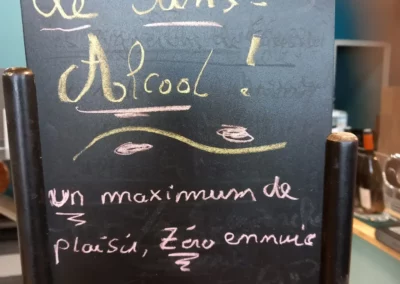 de sans-
Alcool !
un maximum de
plaisir, Zéro ennuis